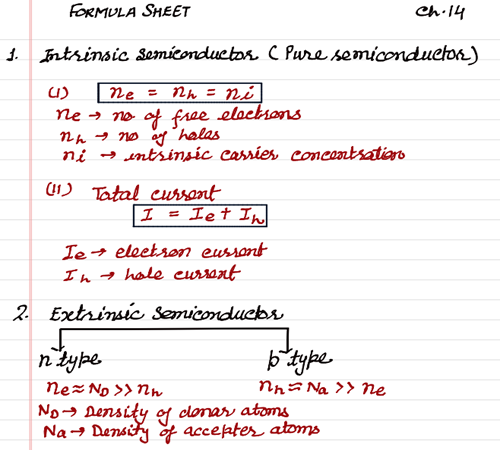 FORMULA SHEET Ch.14
1. Intrinsic semiconductor (Pure semiconductor)
(I) ne = nh = ni
ne → no of free electrons
nh → no of holes
ni → intrinsic carrier concentration
(II) Total current
I = Ie + Ih
Ie → electron current
Ih → hole current
2. Extrinsic semiconductor
n type p type
ne ≈ ND >> nh nh ≈ Na >> ne
ND → Density of donar atoms
Na → Density of accepter atoms